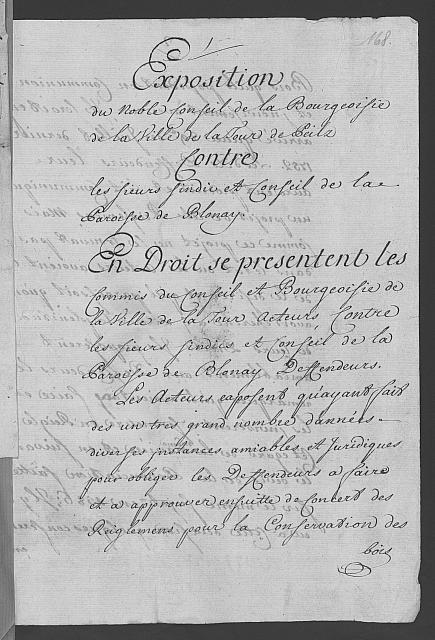 168.
Exposition
du Noble Conseil de la Bourgeoisie
de la Ville de la Tour de Peilz
Contre
les sieurs sindic et Conseil de la
Paroisse de Blonay.
En Droit se presentent les
Commis du Conseil et Bourgeoisie de
la Ville de la Tour, Acteurs Contre
les sieurs sindics et Conseil de la
Paroisse de Blonay Deffendeurs.
Les Acteurs, exposent qu'ayant fait
dès un tres grand nombre d'années
diverses instances amiables et Juridiques
pour obliger les Deffendeurs a faire
et a approuver ensuitte de Concert des
Reiglemens pour la Conservation des
bois